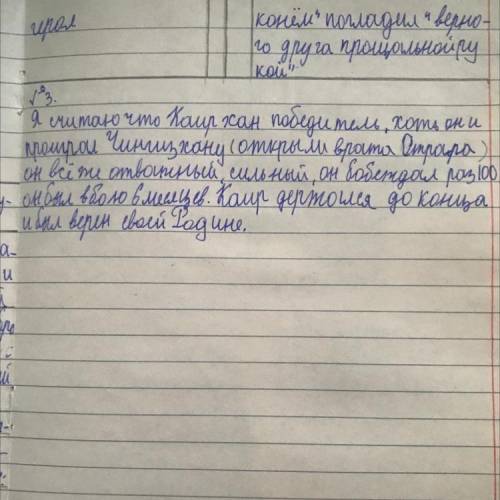 героя
конём" погладил "верно-
го друга прощальной ру
кой"
№3.
Я считаю что Каирхан победитель, хоть он и
проиграл Чингизхану (открыли врата Отрара)
он всё же отважный, сильный, он бобеждал раз 100
он был в бою 6 месяцев. Каир держался до конца
и был верен своей Родине.
а-
и
й